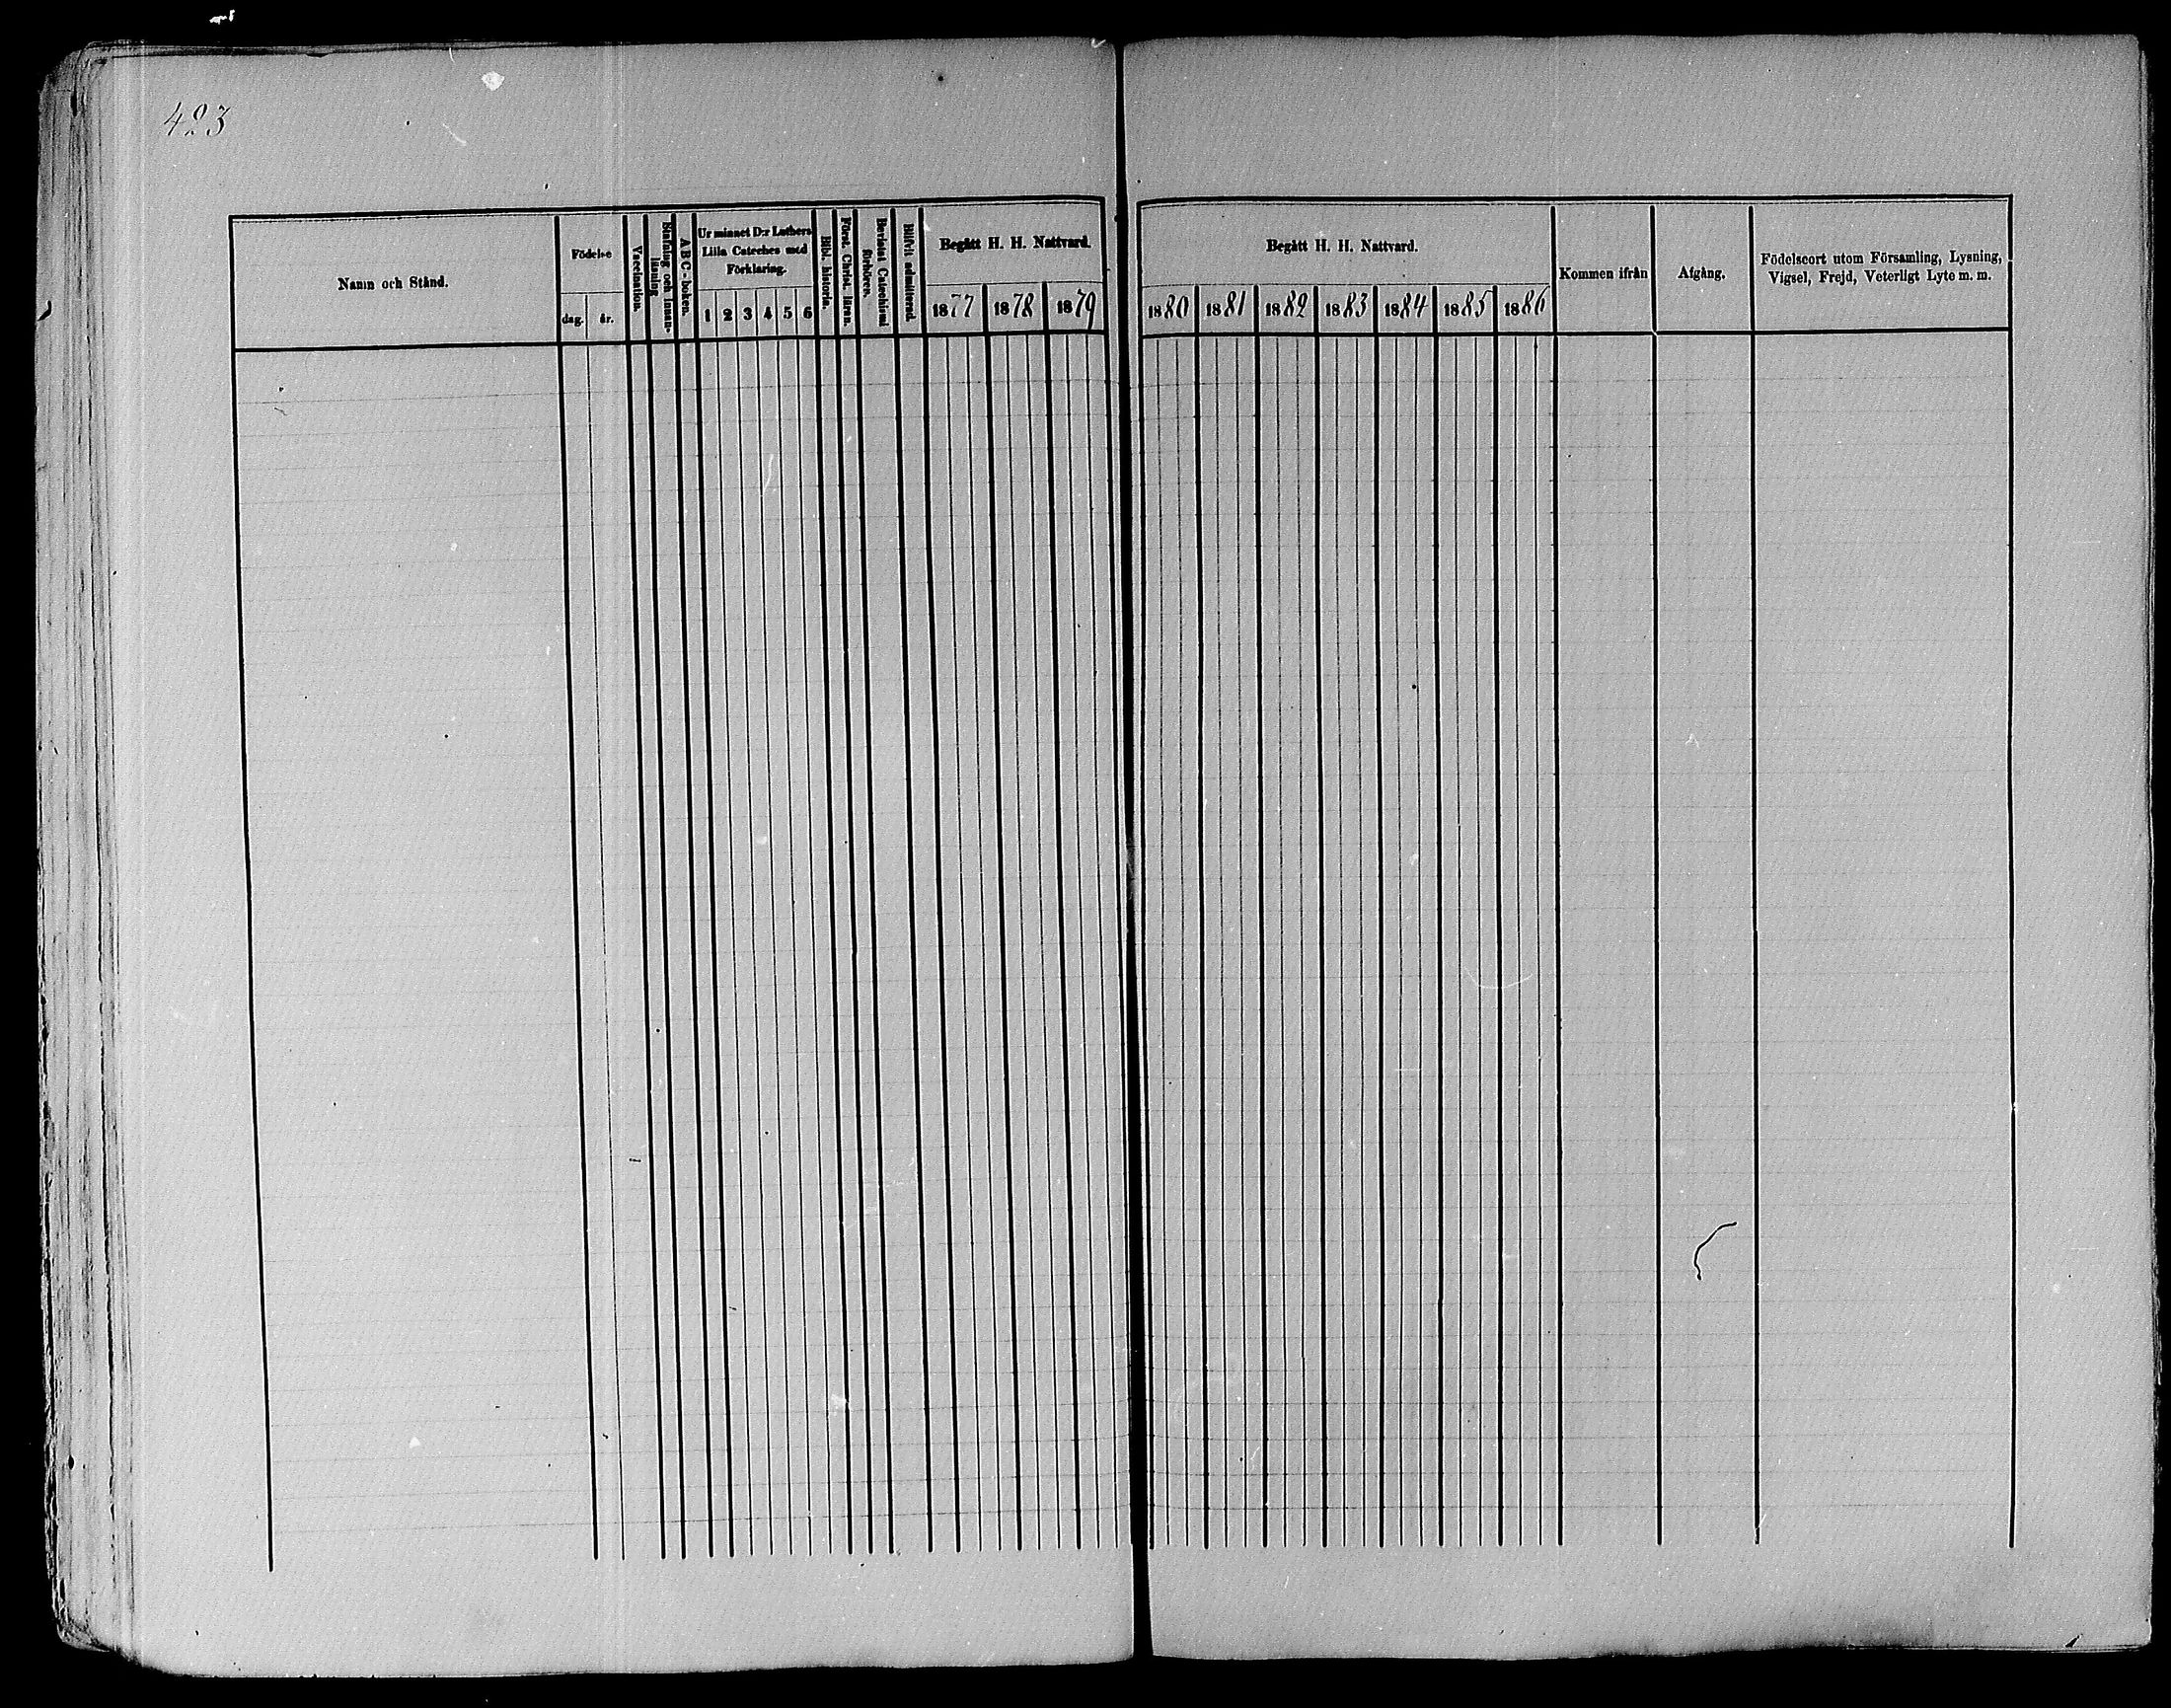 423
Namn och Stånd.
Födelse
dag. år.
Vaccination.
Stafning och Innan-
läsning
ABC-boken.
Ur minnet D:r Luthers
Lilla Cateches med
Förklaring.
1 2 3 4 5 6
Bibl. historia.
Först. Christ. läran.
Bevistat Catechismi
förhören.
Blifvit admitterad.
Begått H. H. Nattvard.
1877 1878 1879
Begått H. H. Nattvard.
1880 1881 1882 1883 1884 1885 1886
Kommen ifrån
Afgång.
Födelseort utom Församling, Lysning,
Vigsel, Frejd, Veterligt Lyte m. m.